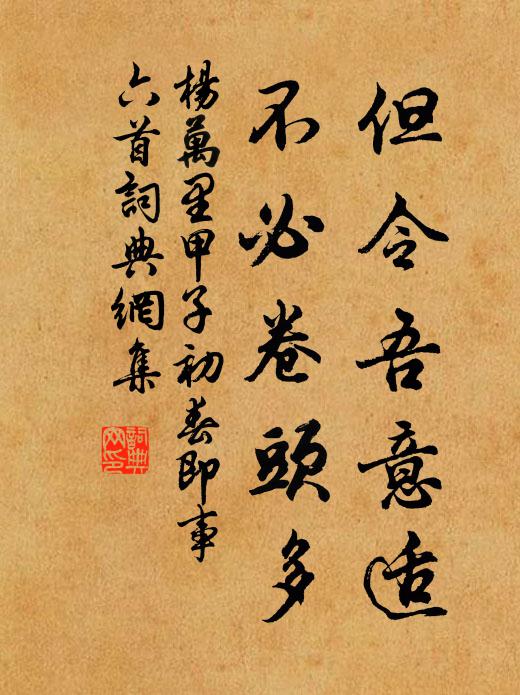 但令吾意适
不必卷頭多
楊萬里甲子初春即事
六首詞典網集
詞典
网印